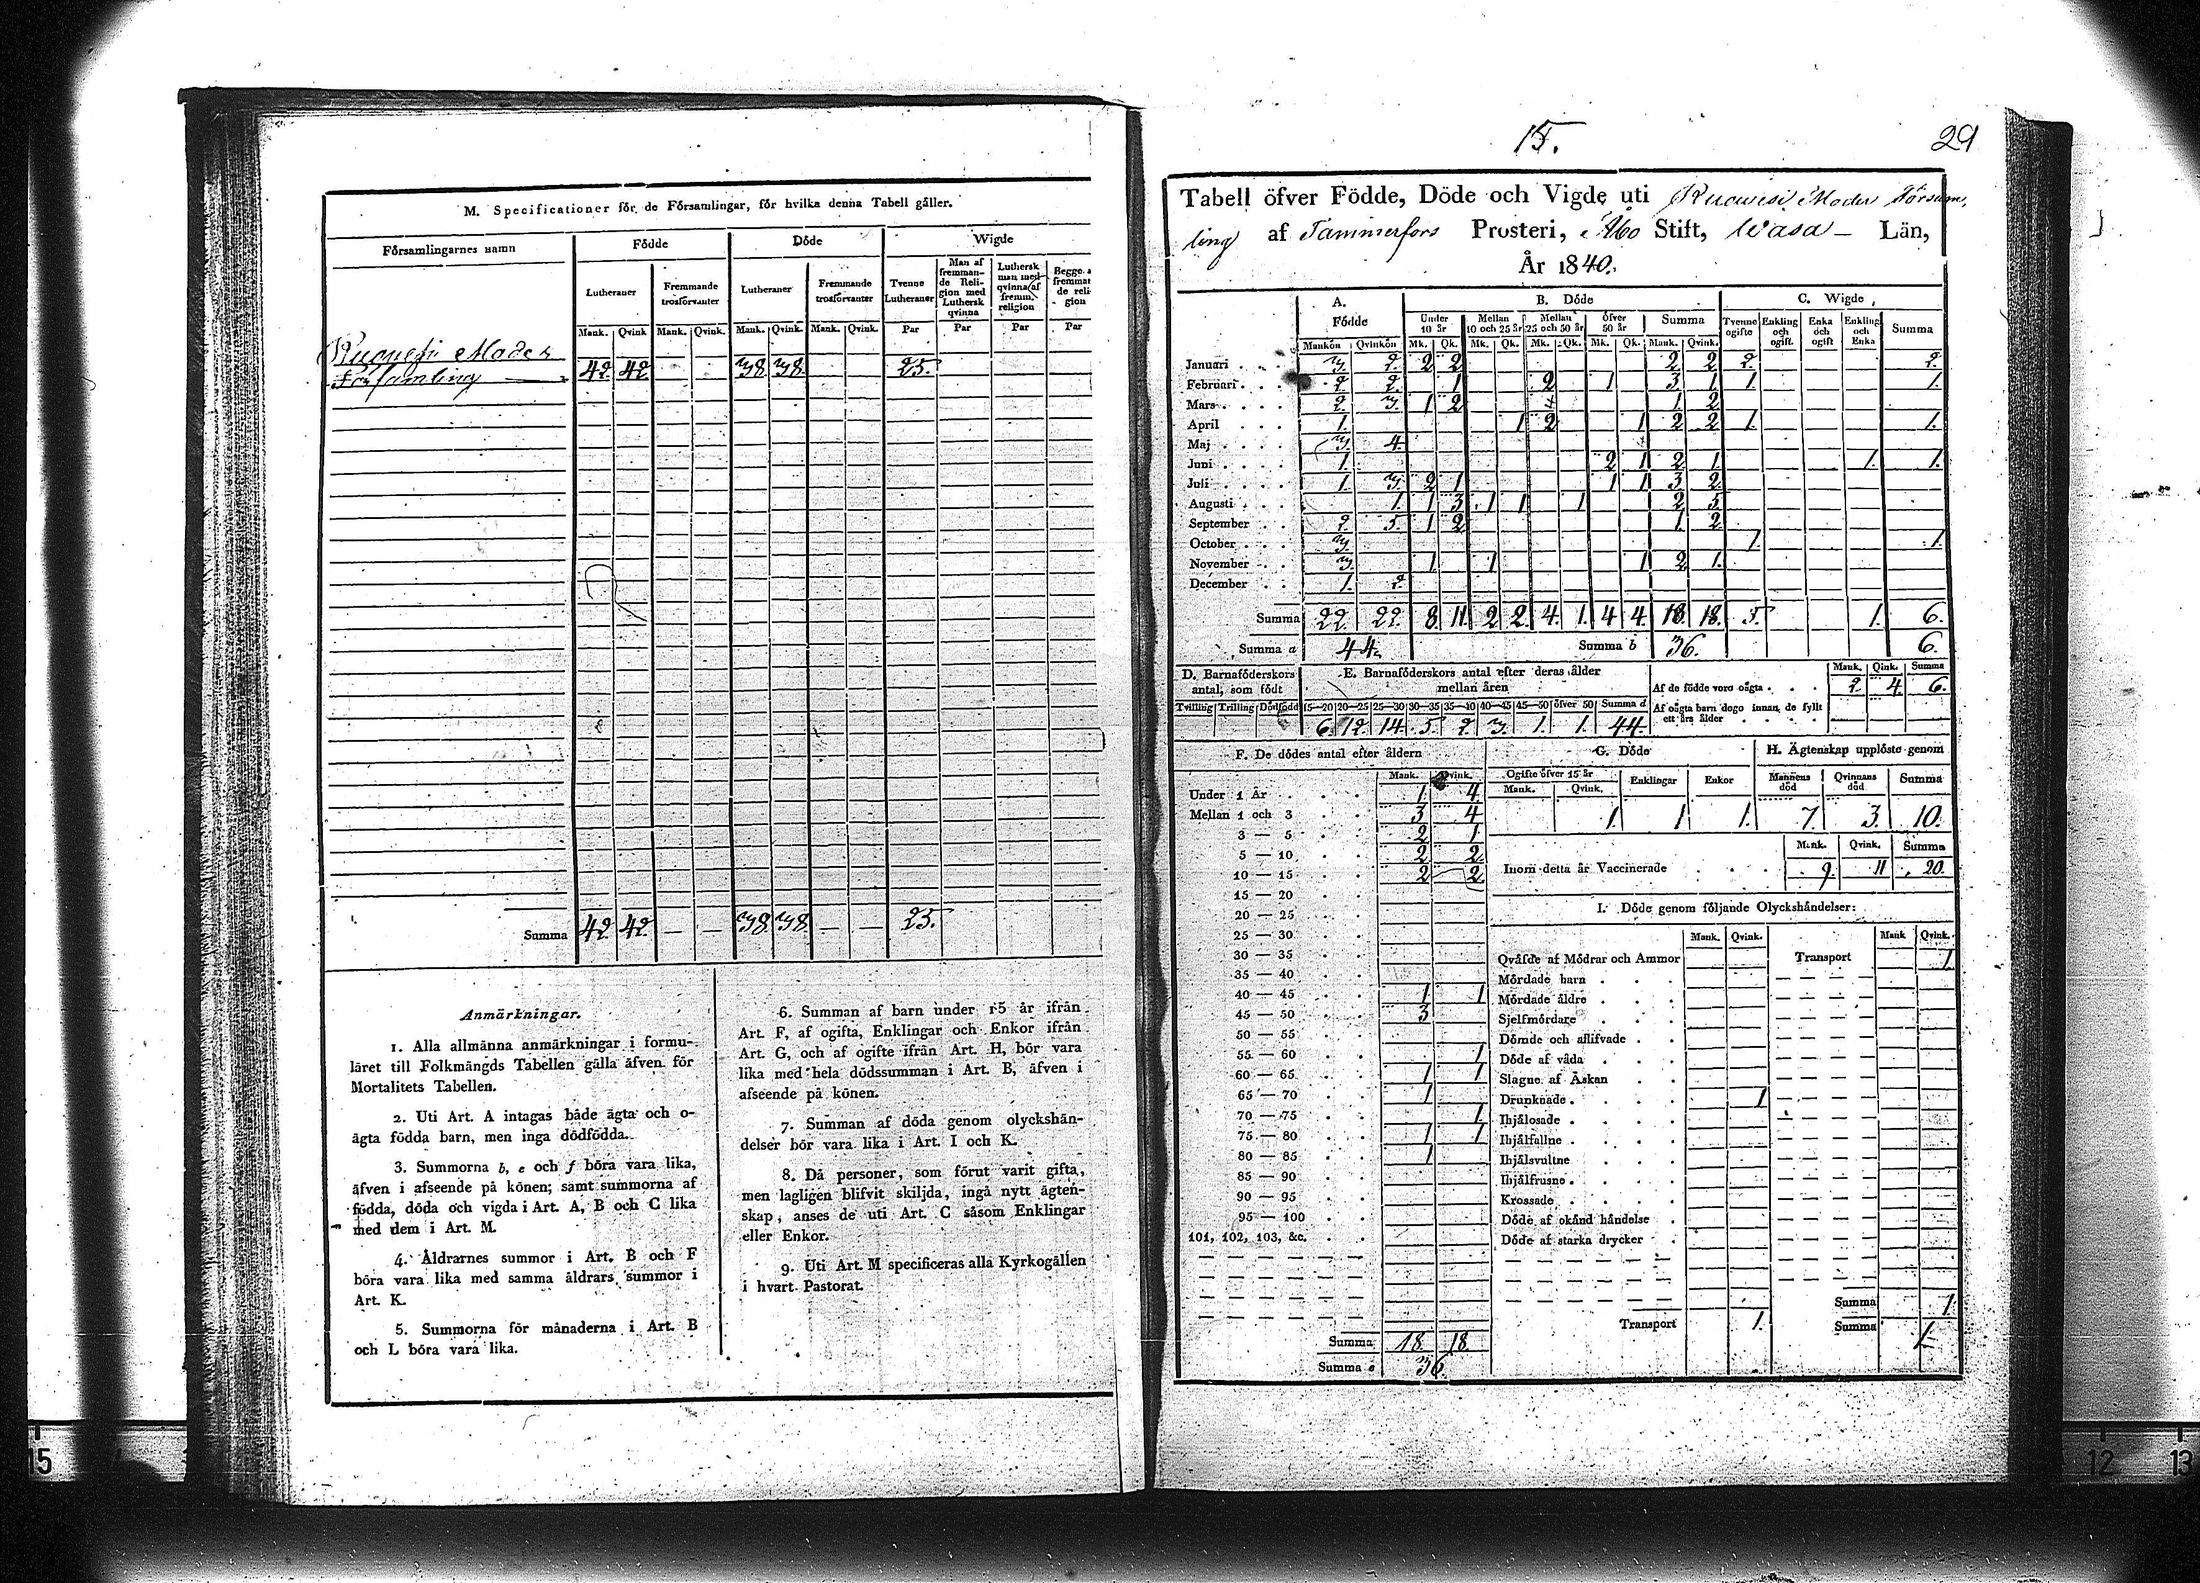 M. Specificationer för de Församlingar, för hvilka denna Tabell gäller.
Församlingarnes namn Födde Döde Wigde
Lutheraner Fremmande trosförvanter Lutheraner Fremmande trosförvanter Tvenne Lutheraner Man af fremmande Religion med Luthersk qvinna Luthersk man med qvinna af fremm. religion Begge a fremmat de reli- gion
Mank. Qvink Mank. Qvink. Mank. Qvink. Mank. Qvink. Par Par Par Par
Ruovesi Moder
Församling 42 42 38 38 25.
Summa 42 42 — — 38 38 — — 25.
Anmärkningar.
1. Alla allmänna anmärkningar i formu-
läret till Folkmängds Tabellen gälla äfven för
Mortalitets Tabellen.
2. Uti Art. A intagas både ägta och o-
ägta födda barn, men inga dödfödda.
3. Summorna b, e och f böra vara lika,
äfven i afseende på könen; samt summorna af
födda, döda och vigda i Art. A, B och C lika
med dem i Art. M.
4. Åldrarnes summor i Art. B och F
böra vara lika med samma åldrars summor i
Art. K.
5. Summorna för månaderna i Art. B
och L böra vara lika.
6. Summan af barn under 15 år ifrån
Art. F, af ogifta, Enklingar och Enkor ifrån
Art. G, och af ogifte ifrån Art. H, bör vara
lika med hela dödssumman i Art. B, äfven i
afseende på könen.
7. Summan af döda genom olyckshän-
delser bör vara lika i Art. I och K.
8. Då personer, som förut varit gifta,
men lagligen blifvit skiljda, ingå nytt ägten-
skap, anses de uti Art. C såsom Enklingar
eller Enkor.
9. Uti Art. M specificeras alla Kyrkogällen
i hvart Pastorat.
15.
29
Tabell öfver Födde, Döde och Vigde uti Ruovesi Moder Församl
ling af Tammerfors Prosteri, Åbo Stift, Wasa Län,
År 1840.
A. Födde B. Döde C. Wigde
Under 10 år Mellan 10 och 25 år Mellan 25 och 50 år Öfver 50 år Summa Tvenne ogifte Enkling och ogift Enka och ogift Enkling och Enka Summa
Mankön Qvinkön Mk. Qk. Mk. Qk. Mk. Qk. Mk. Qk. Mank. Qvink.
Januari 3. 2. 2 2 2 2 2. 2.
Februari 2. 2. 1 2 1 3 1 1. 1.
Mars 2. 3. 1 2 1 2
April 1. 1 2 1 2 2 1. 1.
Maj 3. 4.
Juni 1. 2 1 2 1. 1. 1.
Juli 1. 3. 2 1 1 1 3 2
Augusti 1. 1 3 1 1 1 2 5
September 2. 5. 1 2 1. 2
October 3. 1. 1.
November 3. 1 1 1 2 1.
December 1. 2.
Summa 22. 22. 8 11 2 2 4. 1. 4 4. 18. 18. 5. 1. 6.
Summa a 44. Summa b 36. 6.
D. Barnaföderskors antal, som födt
Tvilling Trilling Dödfödd
E. Barnaföderskors antal efter deras ålder mellan åren
15—20 20—25 25—30 30—35 35—40 40—45 45—50 öfver 50 Summa d
6. 12. 14. 5. 2. 3. 1. 1. 44.
Mank. Qink. Summa
Af de födde voro oägta 2. 4. 6.
Af oägta barn dogo innan de fyllt ett års ålder
F. De dödes antal efter åldern
Mank. Qvink.
Under 1 År 1. 4.
Mellan 1 och 3 3 4
3 — 5 2 1
5 — 10 2 2
10 — 15 2 2
15 — 20
20 — 25
25 — 30
30 — 35
35 — 40
40 — 45 1 1
45 — 50 3
50 — 55
55 — 60 1
60 — 65 1 1
65 — 70 1
70 — 75 1
75 — 80 1 1
80 — 85 1
85 — 90
90 — 95
95 — 100
101, 102, 103, &c.
Summa 18. 18.
Summa e 36.
G. Döde
Ogifte öfver 15 år Enklingar Enkor
Mank. Qvink.
1 1 1.
H. Ägtenskap upplöste genom
Mannens död Qvinnans död Summa
7. 3. 10.
Mank. Qvink. Summa
Inom detta år Vaccinerade 9. 11 20.
I. Döde genom följande Olyckshändelser:
Mank. Qvink. Mank Qvink.
Qväfde af Mödrar och Ammor Transport 1.
Mördade barn
Mördade äldre
Sjelfmördare
Dömde och aflifvade
Döde af våda
Slagne af Åskan
Drunknade 1
Ihjälosade
Ihjälfallne
Ihjälsvultne
Ihjälfrusne
Krossade
Döde af okänd händelse
Döde af starka drycker
Summa 1.
Transport 1. Summa 1.
15
12 13